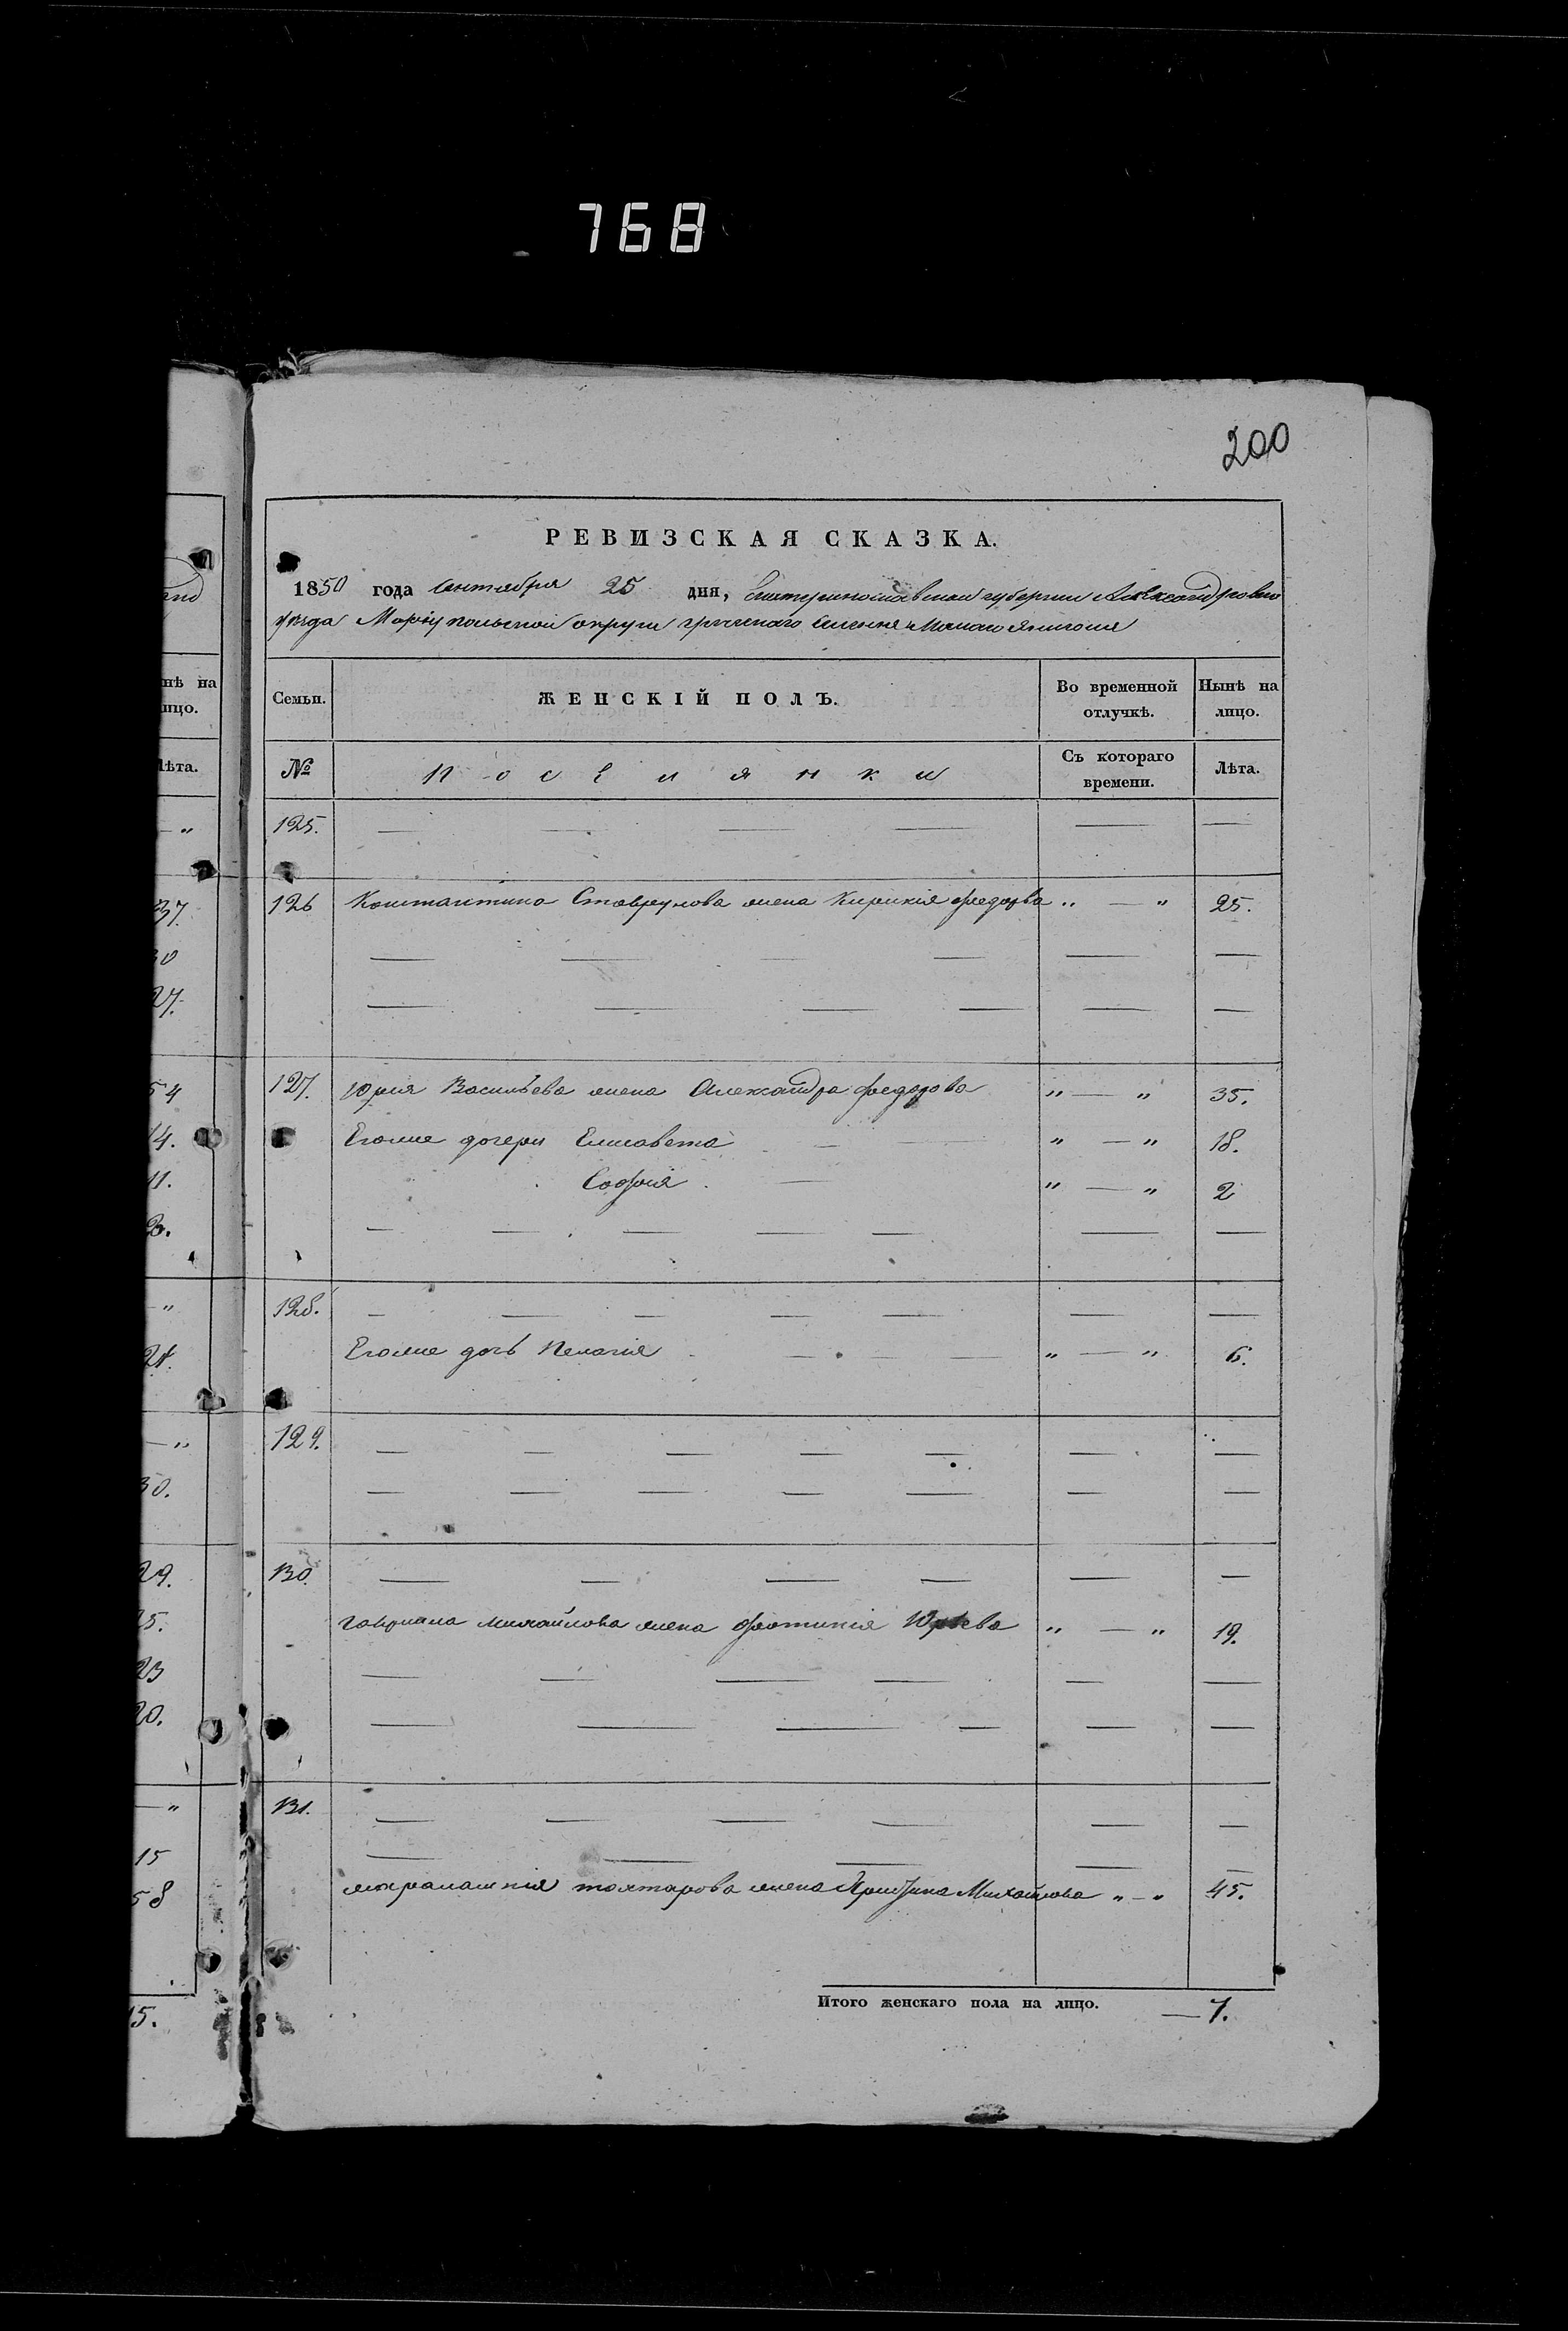 768
200
РЕВИЗСКАЯ СКАЗКА.
1850 года сентября 25 дня, Екатеринославской губернии Александровско
уѣзда Маріупольской округи греческаго селенія Малаго Янисоля
нѣ на
лицо.
Лѣта.
Семьи.
ЖЕНСКІЙ ПОЛЪ.
Во временной
отлучкѣ.
Нынѣ на
лицо.
№
Поселянки
Съ котораго
времени.
Лѣта.
125. — — — — — —
126 Константина Ставрулова жена Кирикія федорова „ — „ 25.
— — — — — —
— — — — — —
127. Юрия Васильева жена Александра федорова „ — „ 35.
Егоже дочери Елисавета — „ — „ 18.
София — „ — „ 2
— — — — — — —
128. — — — — — — —
Егоже дочь Пелагія — — — „ — „ 6.
129. — — — — — — —
— — — — — — —
130. — — — — — —
Гавриила михайлова жена фотинія Юрьева „ — „ 19.
— — — — — —
— — — — — —
131. — — — — — —
— — — — —
тохтарова жена Михайлова „ — „ 45.
Итого женскаго пола на лицо. — 7.